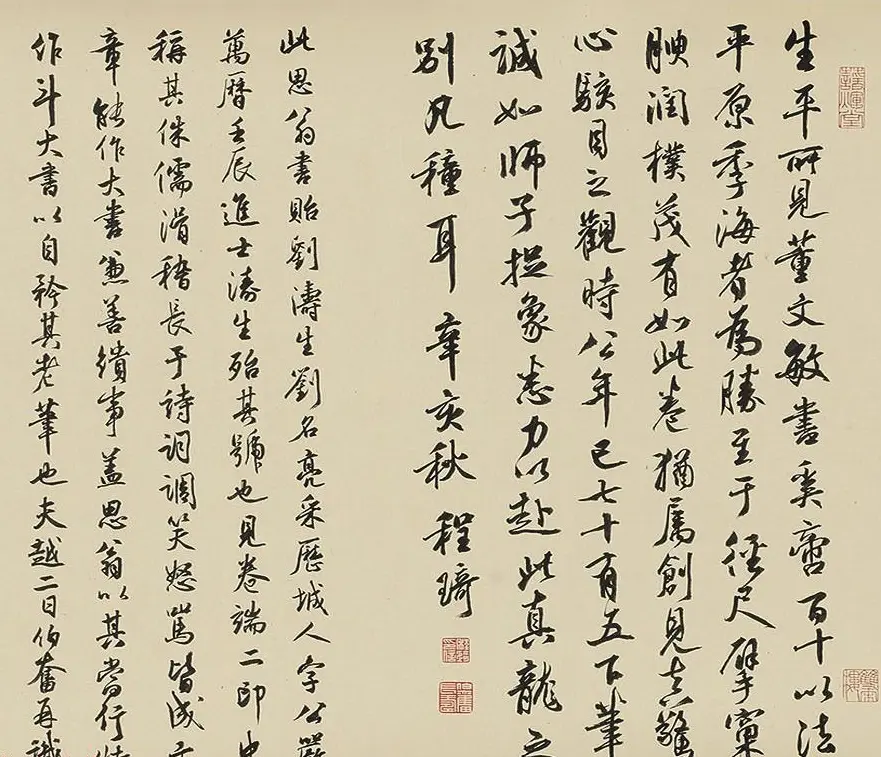 生平所見董文敏書奚啻百十以法
平原季海者為勝至于徑尺擘窠
腴潤樸茂有如此卷猶屬創見真驚
心駭目之觀時公年已七十有五下筆
誠如師子捉象悉力以赴此真龍之
別凡種耳辛亥秋程琦
此思翁書貽劉濤生劉名亮采歷城人字公嚴
萬曆壬辰進士濤生殆其號也見卷端二印史
稱其侏儒滑稽長于詩詞調笑怒罵皆成文
章能作大書兼善繢事蓋思翁以其嘗行
作斗大書以自矜其老筆也夫越二日伯奮再識